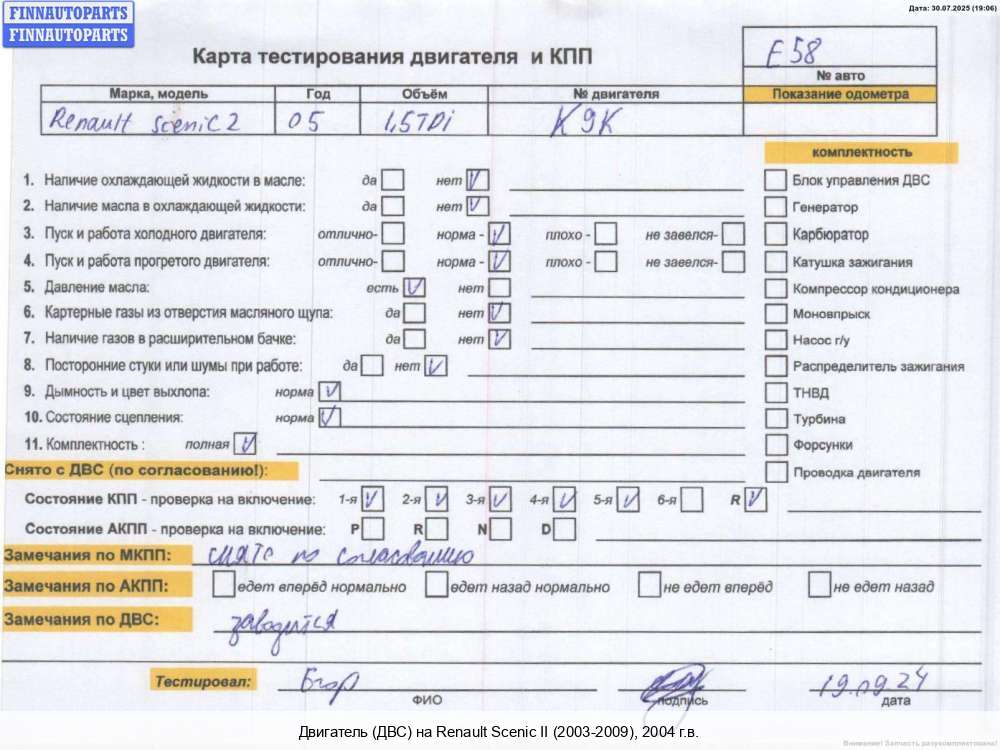 FINNAUTOPARTS
FINNAUTOPARTS
Дата: 30.07.2025 (19:06)
Карта тестирования двигателя и КПП
E58
№ авто
Марка, модель Год Объём № двигателя Показание одометра
Renault Scenic 2 05 1,5TDi K9K
комплектность
1. Наличие охлаждающей жидкости в масле: да нет V Блок управления ДВС
2. Наличие масла в охлаждающей жидкости: да нет V Генератор
3. Пуск и работа холодного двигателя: отлично- норма - V плохо - не завелся- Карбюратор
4. Пуск и работа прогретого двигателя: отлично- норма - V плохо - не завелся- Катушка зажигания
5. Давление масла: есть V нет Компрессор кондиционера
6. Картерные газы из отверстия масляного щупа: да нет V Моновпрыск
7. Наличие газов в расширительном бачке: да нет V Насос г/у
8. Посторонние стуки или шумы при работе: да нет V Распределитель зажигания
9. Дымность и цвет выхлопа: норма V ТНВД
10. Состояние сцепления: норма V Турбина
11. Комплектность : полная V Форсунки
Снято с ДВС (по согласованию!): Проводка двигателя
Состояние КПП - проверка на включение: 1-я V 2-я V 3-я V 4-я V 5-я V 6-я R V
Состояние АКПП - проверка на включение: P R N D
Замечания по МКПП: снято по согласованию
Замечания по АКПП: едет вперёд нормально едет назад нормально не едет вперёд не едет назад
Замечания по ДВС: заводится
Тестировал: Егор 19.09.24
ФИО подпись дата
Двигатель (ДВС) на Renault Scenic II (2003-2009), 2004 г.в.
Внимание! Запчасть разукомплектована!